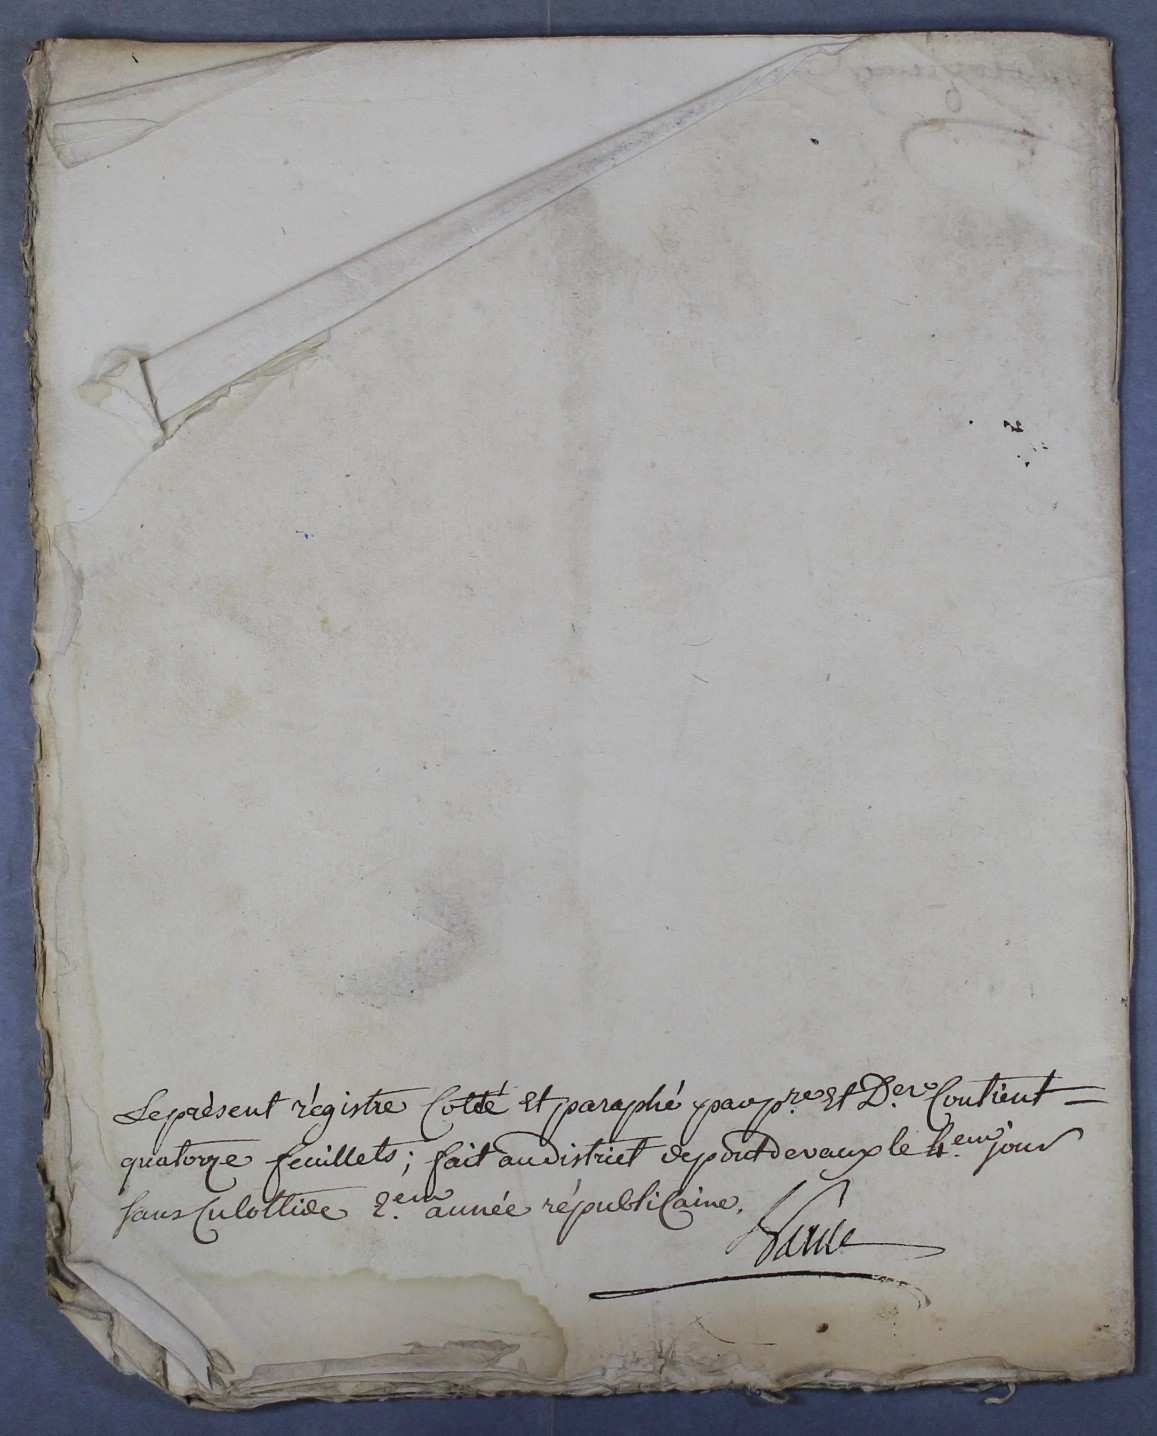 Le présent régistre Cotté et paraphé par pre et Der Contient =
quatorze feuillets; fait au district de pont devaux le 4.em jour
sans Culottide 2.em année républiCaine.